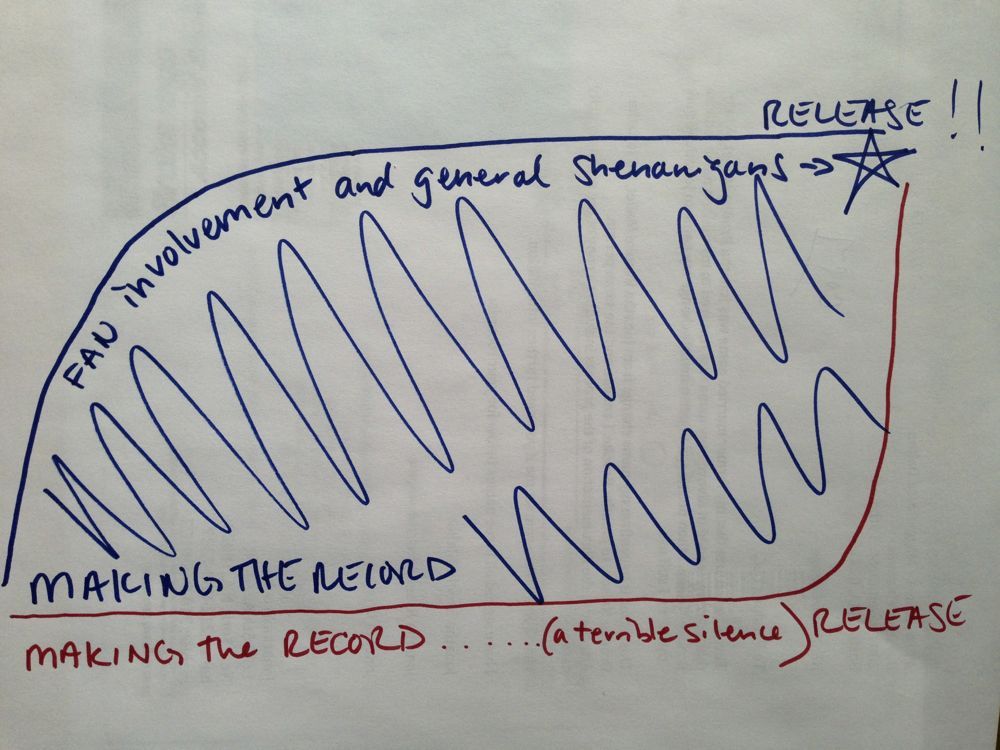 RELEASE !!
FAN involvement and general shenanigans →
MAKING THE RECORD
MAKING the RECORD.......(a terrible silence) RELEASE